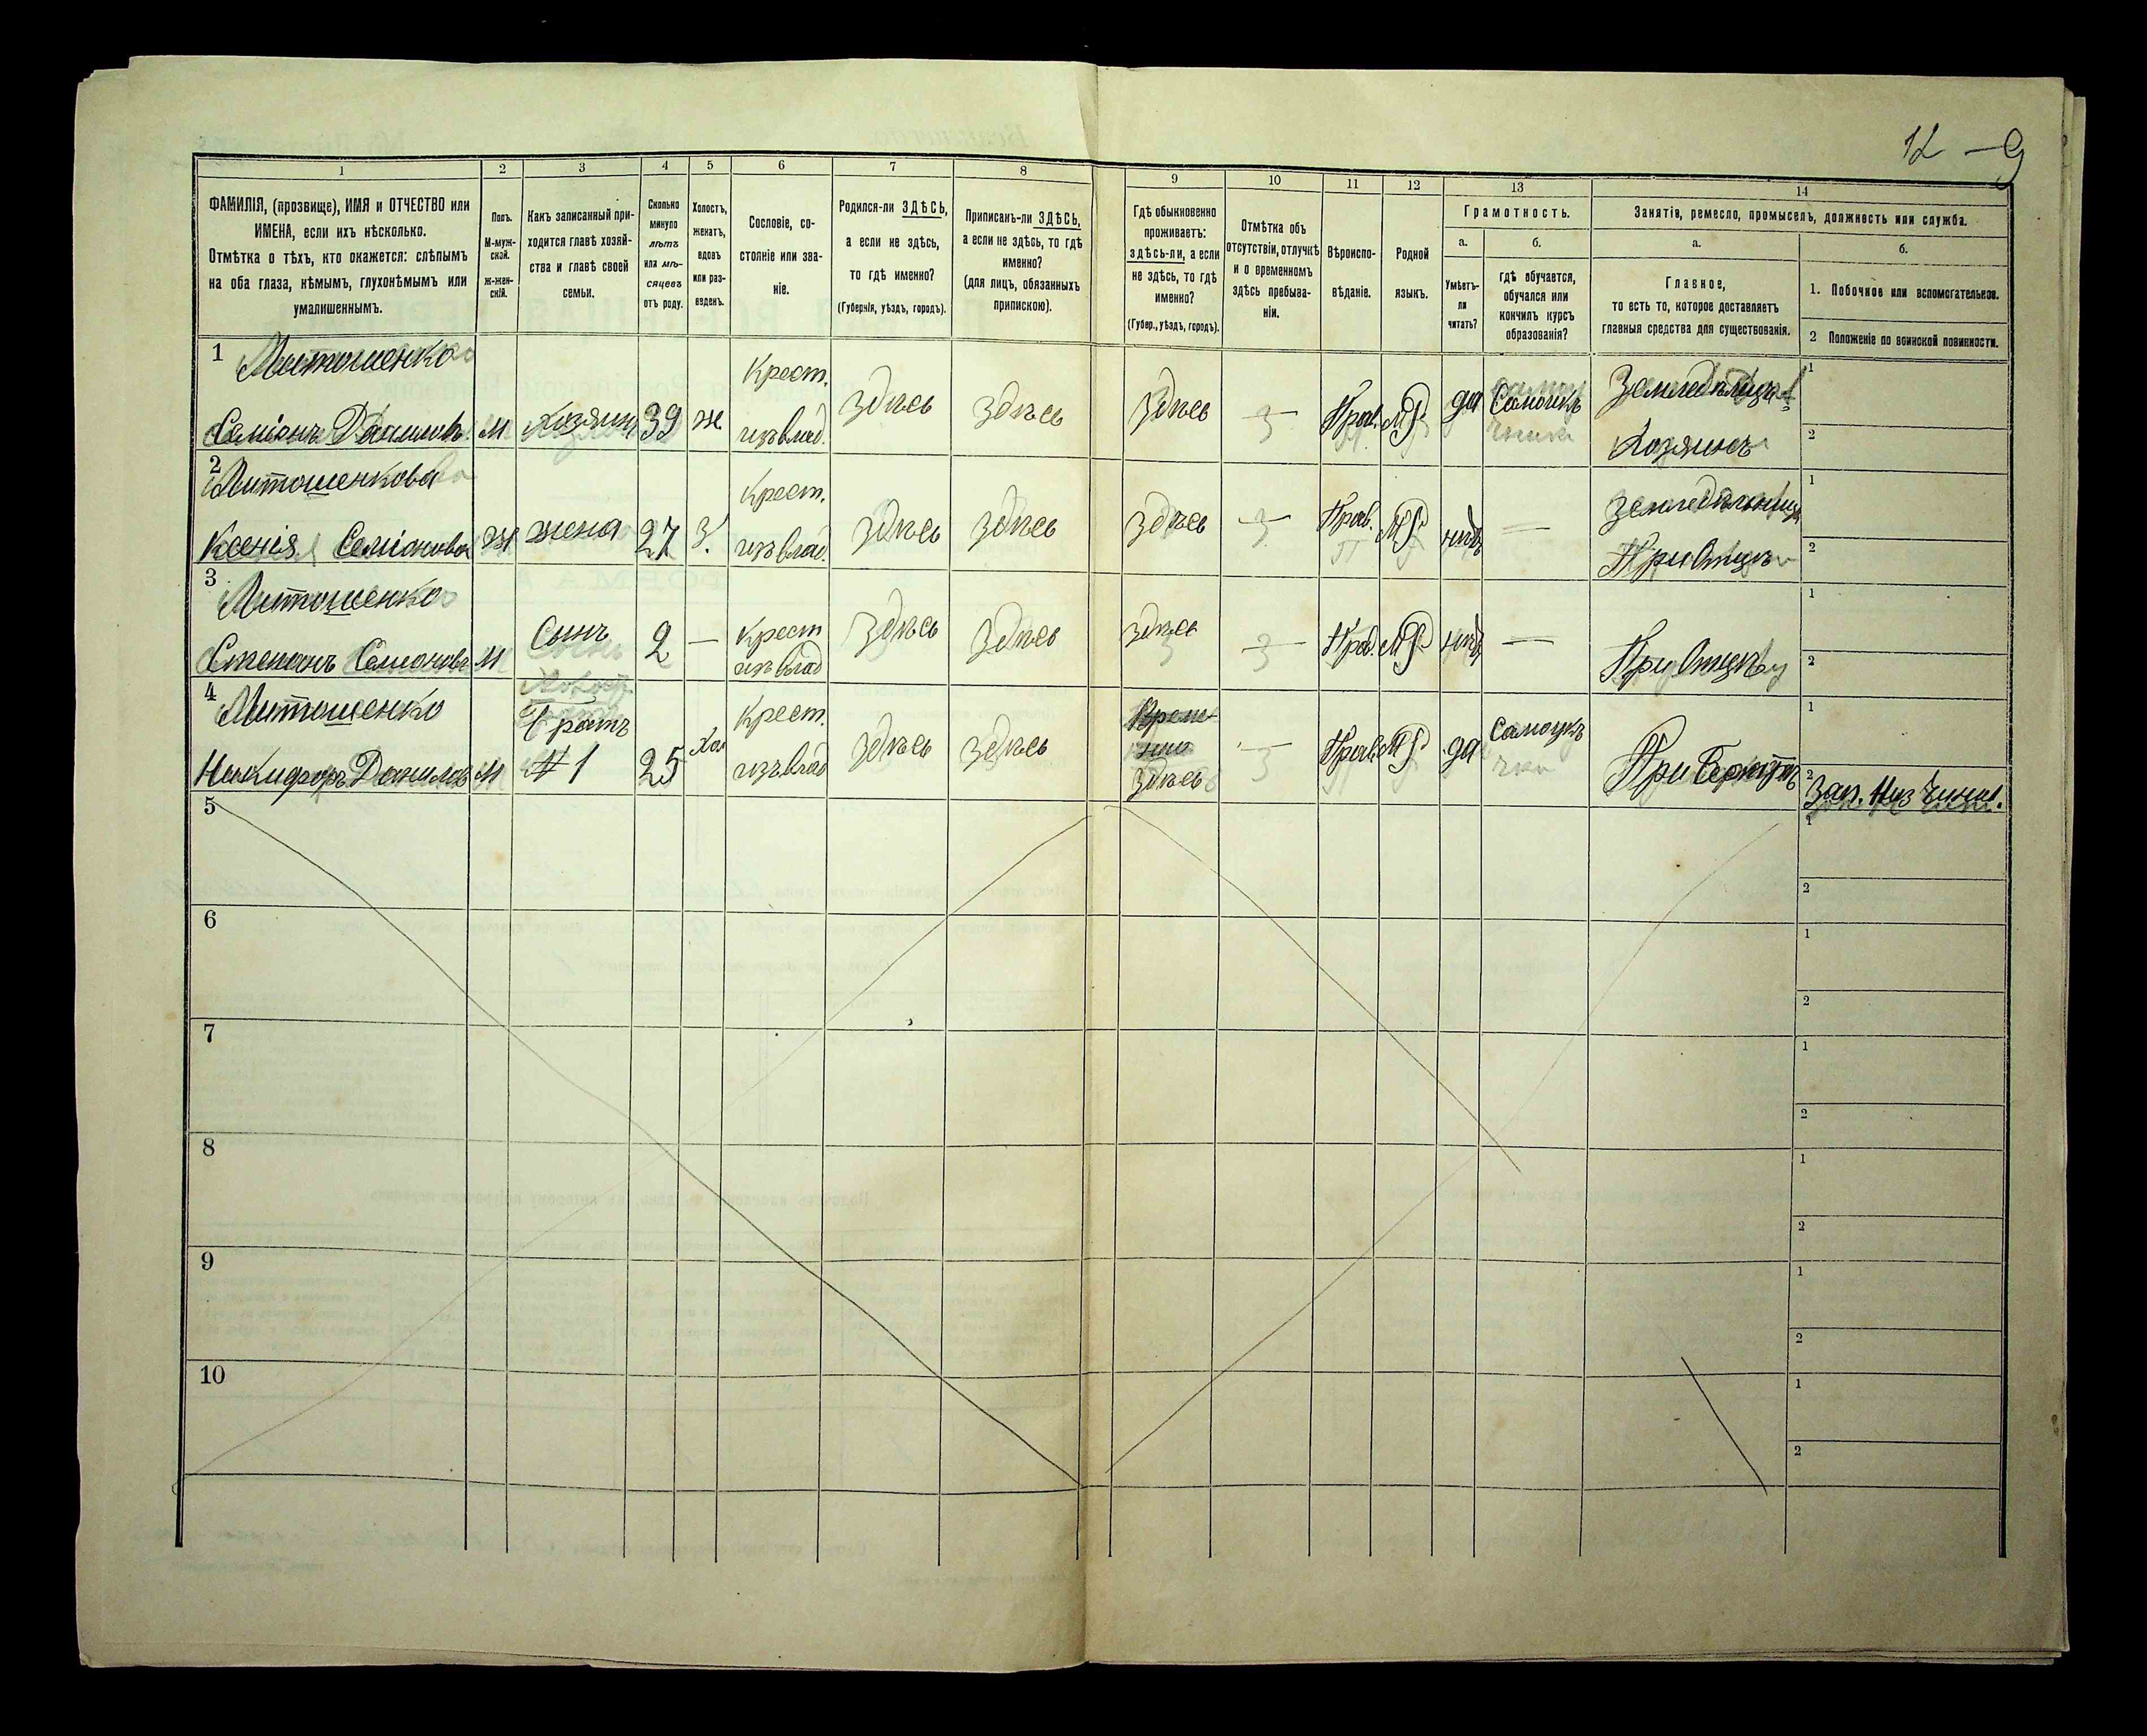 12 — 9
1
2
3
4
5
6
7
8
9
10
11
12
13
14
ФАМИЛІЯ, (прозвище), ИМЯ и ОТЧЕСТВО или
ИМЕНА, если ихъ нѣсколько.
Отмѣтка о тѣхъ, кто окажется: слѣпымъ
на оба глаза, нѣмымъ, глухонѣмымъ или
умалишеннымъ.
Полъ.
М-муж-
ской.
Ж-жен-
скій.
Какъ записанный при-
ходится главѣ хозяй-
ства и главѣ своей
семьи.
Сколько
минуло
лѣтъ
или мѣ-
сяцевъ
отъ роду.
Холостъ,
женатъ,
вдовъ
или раз-
веденъ.
Сословіе, со-
стояніе или зва-
ніе.
Родился-ли ЗДѢСЬ,
а если не здѣсь,
то гдѣ именно?
(Губернія, уѣздъ, городъ).
Приписанъ-ли ЗДѢСЬ,
а если не здѣсь, то гдѣ
именно?
(для лицъ, обязанныхъ
припискою).
Гдѣ обыкновенно
проживаетъ:
здѣсь-ли, а если
не здѣсь, то гдѣ
именно?
(Губер., уѣздъ, городъ).
Отмѣтка объ
отсутствіи, отлучкѣ
и о временномъ
здѣсь пребыва-
ніи.
Вѣроиспо-
вѣданіе.
Родной
языкъ.
Грамотность.
а.
Умѣетъ-
ли
читать?
б.
гдѣ обучается,
обучался или
кончилъ курсъ
образованія?
Занятіе, ремесло, промыселъ, должность или служба.
а.
Главное,
то есть то, которое доставляетъ
главныя средства для существованія.
б.
1. Побочное или вспомогательное.
2 Положеніе по воинской повинности.
1
Митошенко
Семіонъ Данилов.
М
Хозяинъ
39
ж.
Крест.
изъ влад.
Здѣсь
Здѣсь
Здѣсь
—
Прав.
МР
да
Землѣдѣлецъ
Хозяинъ
1
2
2
Митошенкова
Ксенія Семіонова
Ж
жена
27
З.
Крест.
изъ влад.
Здѣсь
Здѣсь
Здѣсь
—
Прав.
МР
нѣтъ
—
При Отцѣ
1
2
3
Митошенко
Степанъ Семіоновъ
М
Сынъ
2
—
Крест
изъ влад
Здѣсь
Здѣсь
здѣсь
—
Прав.
МР
нѣтъ
—
При Отцѣ
1
2
4
Митошенко
Никифоръ Данилов
М
Братъ
№ 1
25
Хол
Крест.
изъ влад
Здѣсь
Здѣсь
Здѣсь
—
Прав.
МР
да
При Братѣ
1
2
Зап. Низ Чинъ.
5
1
2
6
1
2
7
1
2
8
1
2
9
1
2
10
1
2